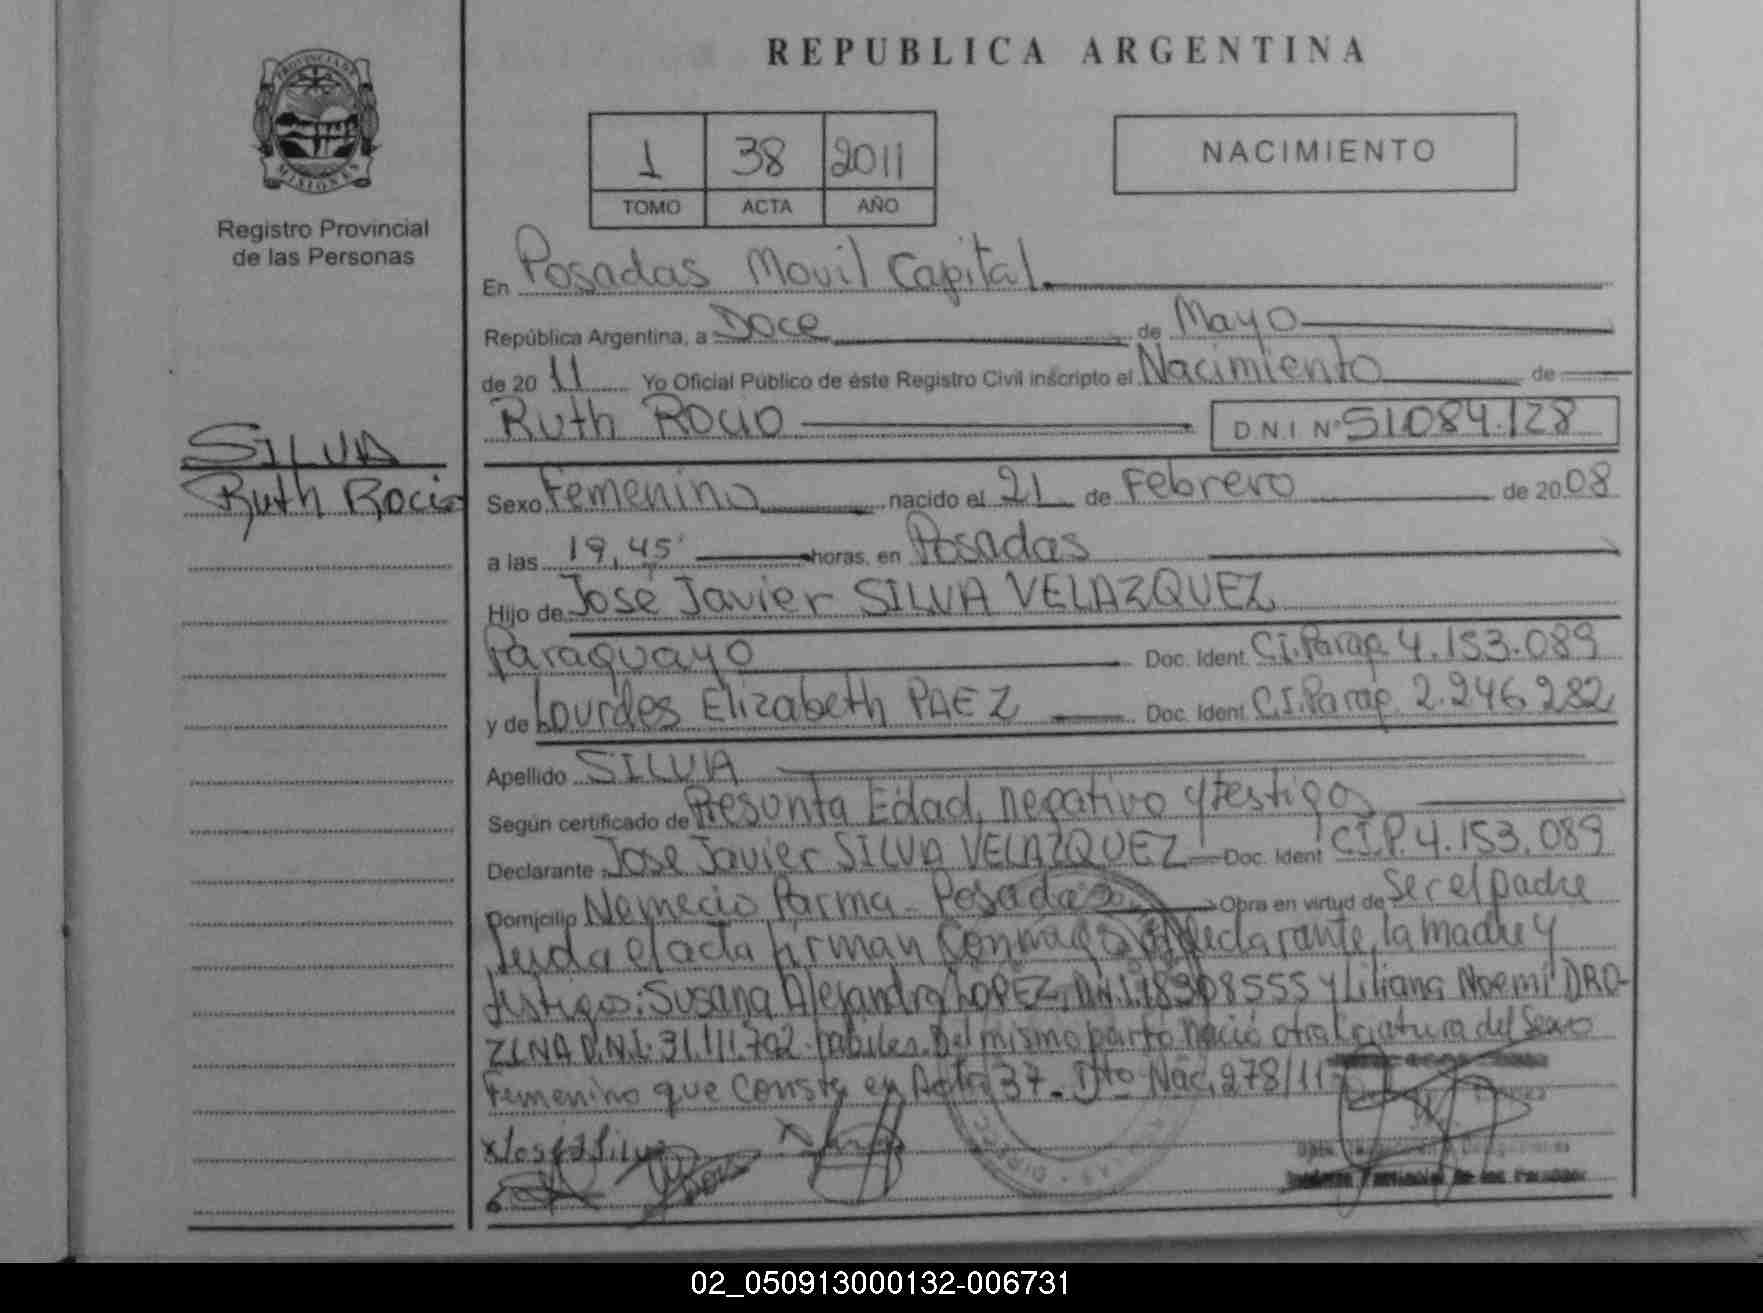 REPUBLICA ARGENTINA
PROVINCIA DE
MISIONES
Registro Provincial
de las Personas
1 38 2011
TOMO ACTA AÑO
NACIMIENTO
En Posadas Movil Capital.
República Argentina, a Doce de Mayo
de 20 11 Yo Oficial Público de éste Registro Civil inscripto el Nacimiento de
Ruth Rocio D.N.I Nº 51.084.128
SILVA
Ruth Rocio
Sexo Femenino nacido el 21 de Febrero de 20 08
a las 19,45 horas, en Posadas
Hijo de José Javier SILVA VELAZQUEZ
Paraguayo Doc. Ident. C.I.Parag. 4.153.089
y de Lourdes Elizabeth PAEZ Doc. Ident. C.I.Parag. 2.246.282
Apellido SILVA
Según certificado de Presunta Edad, negativo y testigos
Declarante José Javier SILVA VELAZQUEZ Doc. Ident C.I.P. 4.153.089
Domicilio Nemecio Parma - Posadas Obra en virtud de Ser el padre
leída el acta firman Conmigo el declarante, la madre y
testigos: Susana Alejandra LOPEZ, D.N.I. 18.308555 y Liliana Noemi DRO-
ZINA D.N.I. 31.111.702. habiles. Del mismo parto nació otra criatura del Sexo
Femenino que consta en Acta 37. Dto Nac. 278/11
x José J Silva
02_050913000132-006731